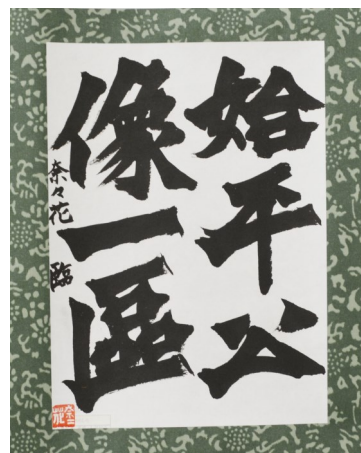 始平公
像一區
奈々花 臨